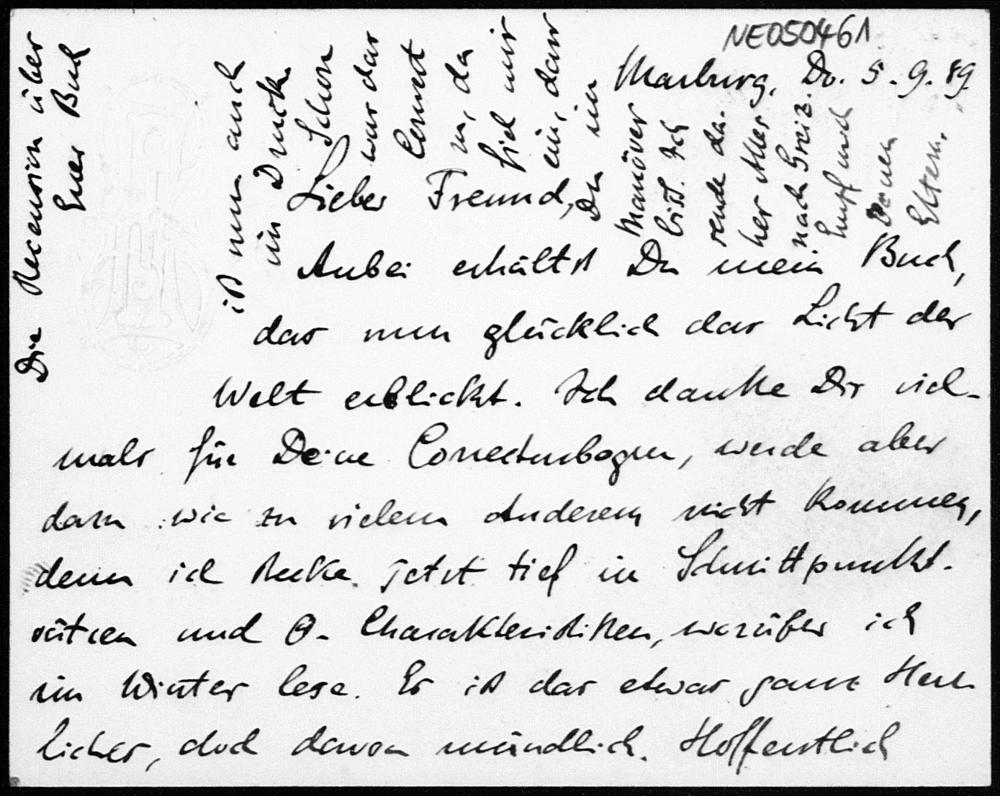 NE050461
Marburg, Do. 5. 9. 89.
Lieber Freund,
Anbei erhältst Du mein Buch,
das nun glücklich das Licht der
Welt erblickt. Ich danke Dir viel-
mals für Deine Correcturbogen, werde aber
dazu wie zu vielem Anderem nicht kommen,
denn ich stecke jetzt tief in Schnittpunkt-
sätzen und Θ-Charakteristiken, worüber ich
im Winter lese. Es ist das etwas ganz Herr-
liches, doch davon mündlich. Hoffentlich
Die Recension über
Euer Buch
ist nun auch
im Druck.
Schon
war das
Couvert
zu, da
fiel mir
ein, dass
Du im
Manöver
bist. Ich
sende da-
her Alles
nach Greiz.
Gruß auch
Deinen
Eltern.